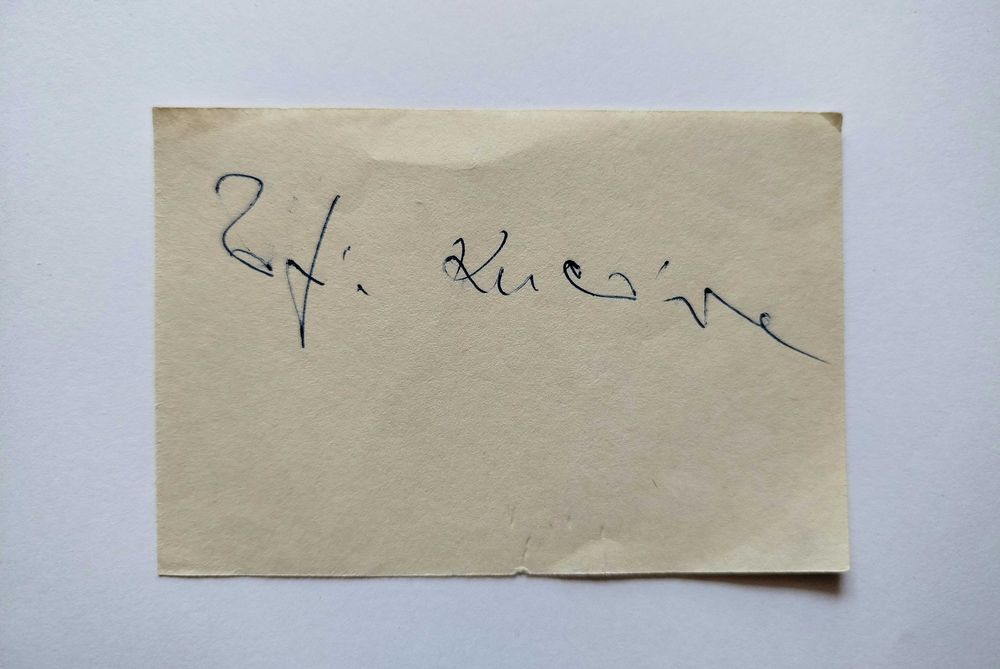 Zofia Kucówna